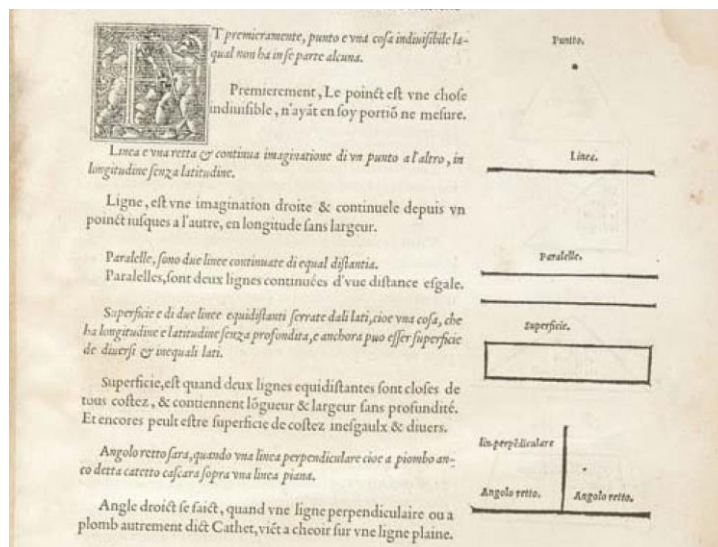 ET premieramente, punto e vna cosa indiuisibile la-
qual non ha in se parte alcuna.
Premierement, Le poinct est vne chose
indiuisible, n'ayãt en soy portiõ ne mesure.
Linea e vna retta & continua imaginatione di vn punto a l'altro, in
longitudine senza latitudine.
Ligne, est vne imagination droite & continuele depuis vn
poinct iusques a l'autre, en longitude sans largeur.
Paralelle, sono due linee continuate di equal distantia.
Paralelles, sont deux lignes continuées d'vue distance esgale.
Superficie e di due linee equidistanti serrate dali lati, cioe vna cosa, che
ha longitudine e latitudine senza profondita, e anchora puo esser superficie
de diuersi & inequali lati.
Superficie, est quand deux lignes equidistantes sont closes de
tous costez, & contiennent lõgueur & largeur sans profundité.
Et encores peult estre superficie de costez inesgaulx & diuers.
Angolo retto sara, quando vna linea perpendiculare cioe a piombo an-
co detta catetto cascara sopra vna linea piana.
Angle droict se faict, quand vne ligne perpendiculaire ou a
plomb autrement dict Cathet, viẽt a cheoir sur vne ligne plaine.
Puntto.
Linea.
Paralelle.
Superficie.
lin.perpẽdiculare
Angolo retto.
Angolo retto.